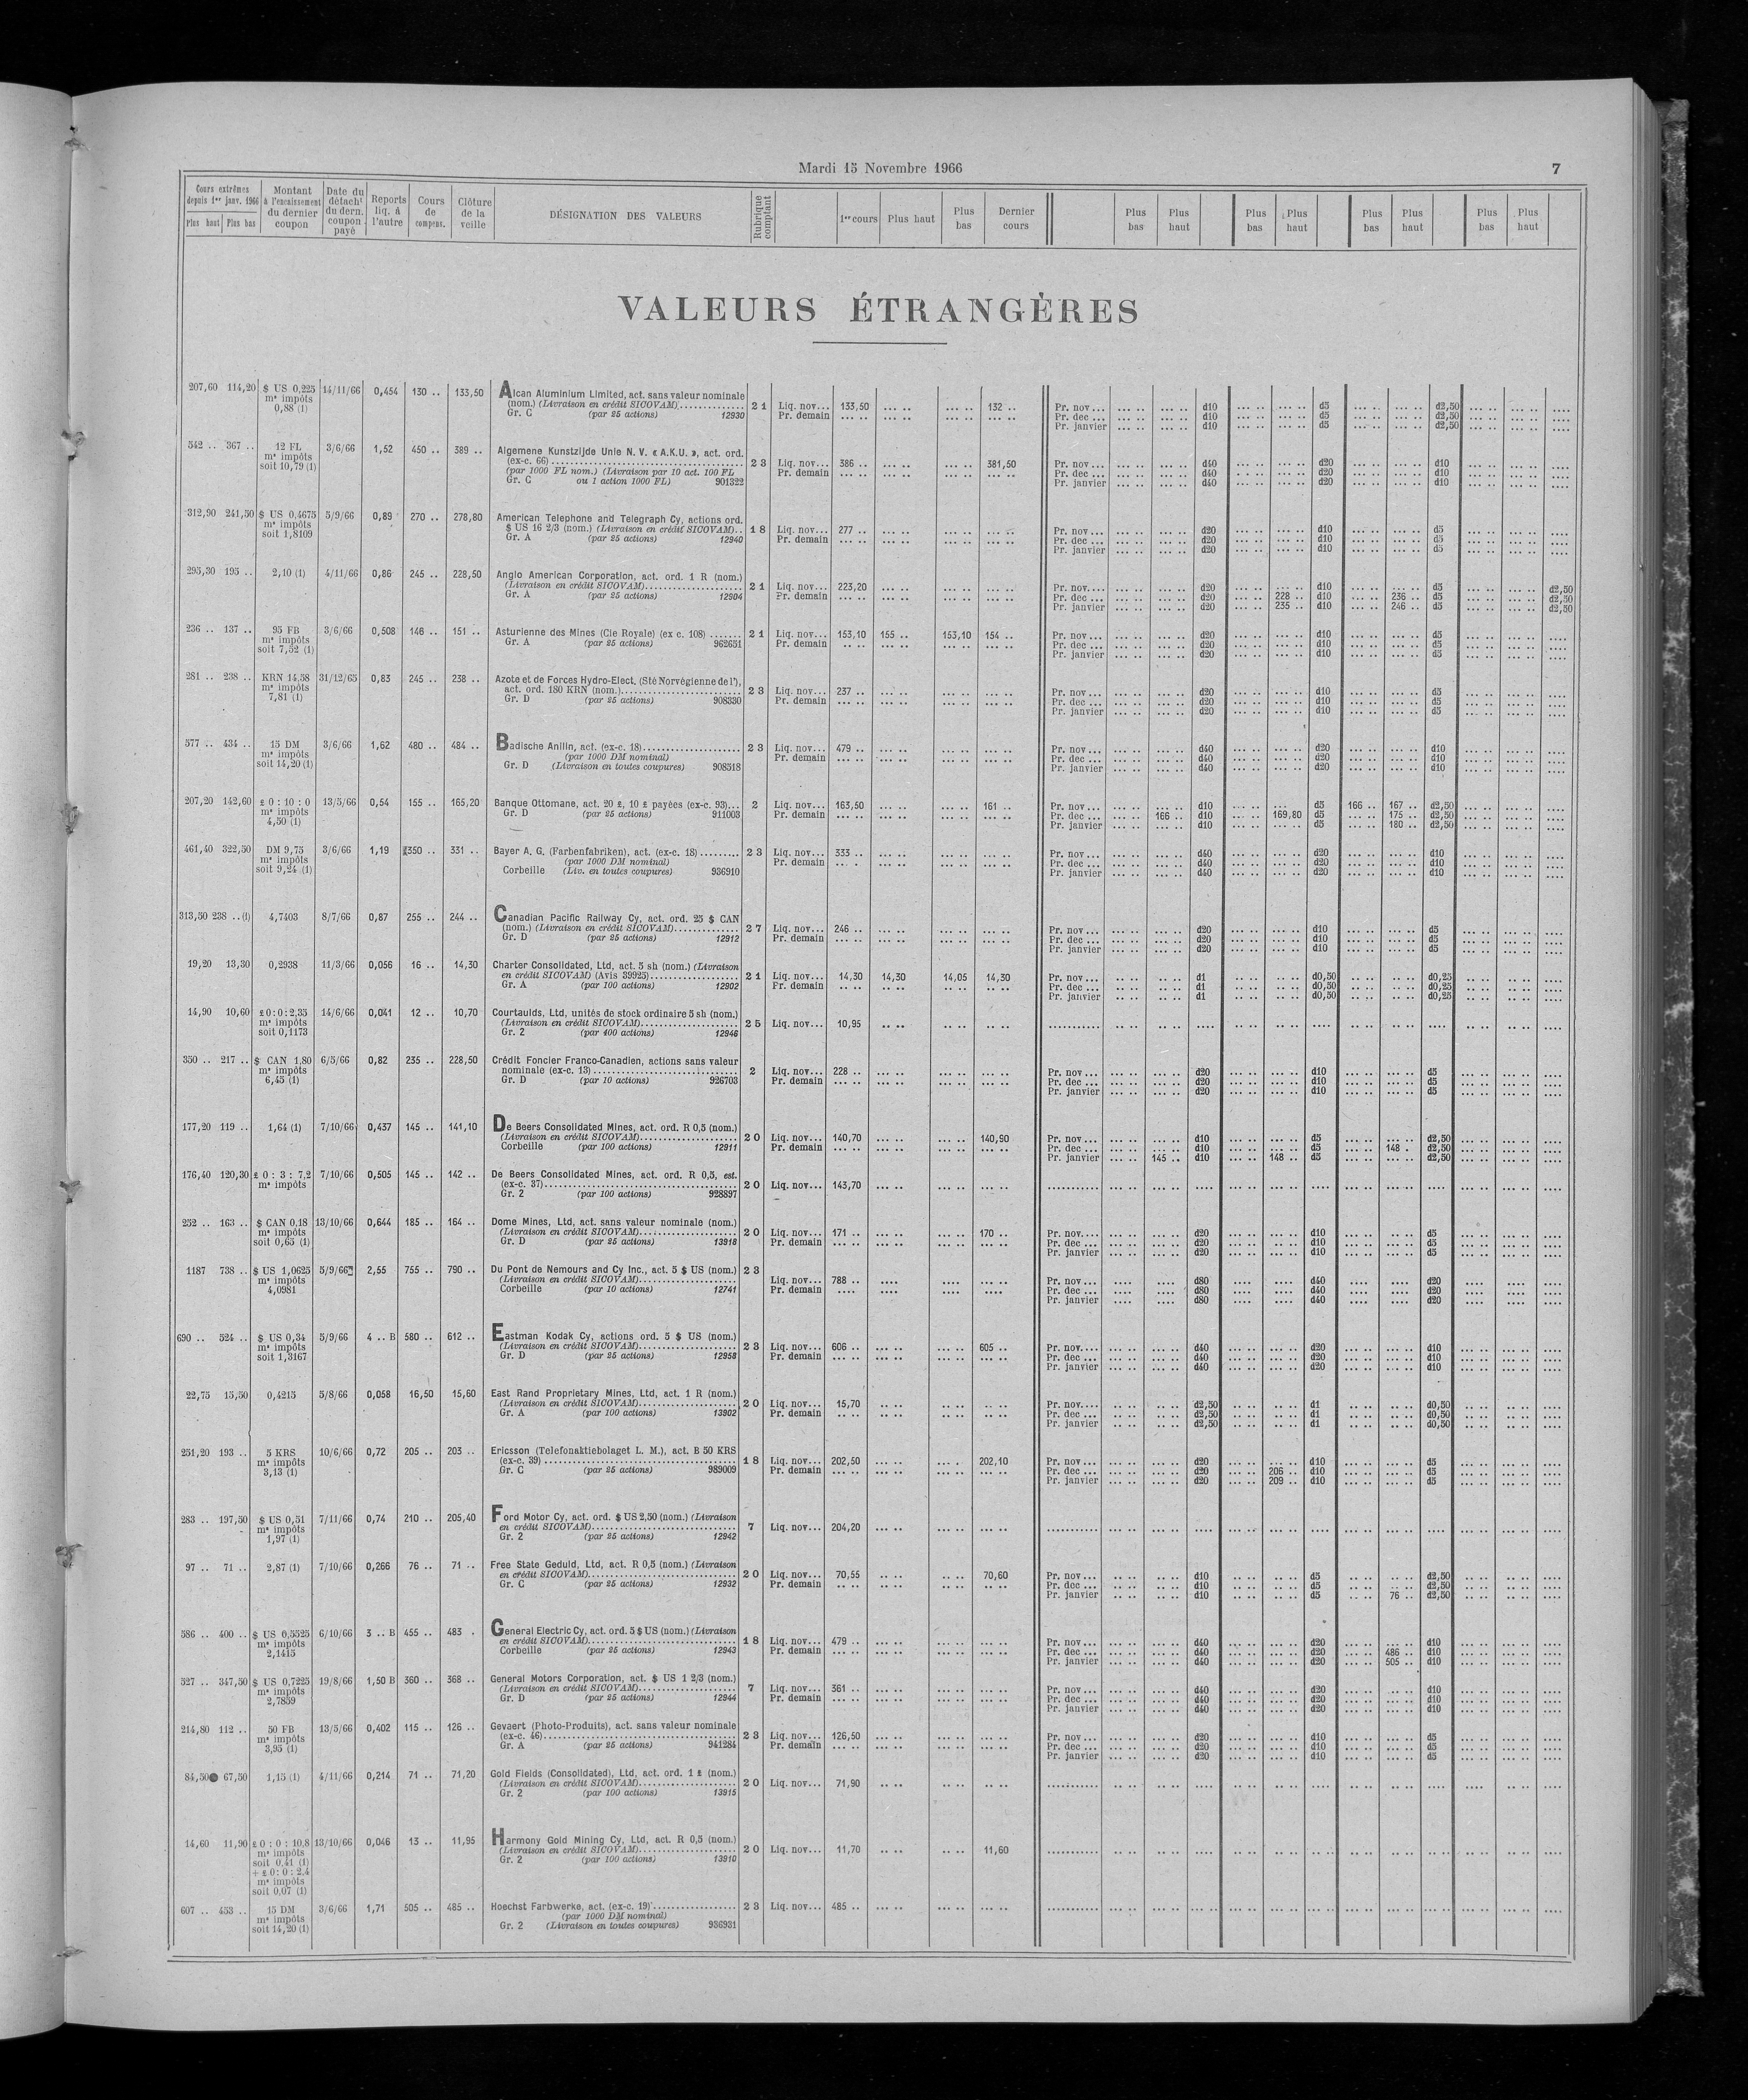 Mardi 15 Novembre 1966
7
Cours extrêmes depuis 1er janv. 1966 Plus haut Plus bas | Montant à l'encaissement du dernier coupon | Date du détacht du dern. coupon payé | Reports liq. à l'autre | Cours de compens. | Clôture de la veille | DÉSIGNATION DES VALEURS | Rubrique comptant | 1er cours | Plus haut | Plus bas | Dernier cours | Plus bas | Plus haut | Plus bas | Plus haut | Plus bas | Plus haut | Plus bas | Plus haut
VALEURS ÉTRANGÈRES
207,60 114,20 $ US 0,225 14/11/66 0,454 130 .. 133,50 Alcan Aluminium Limited, act. sans valeur nominale
m' impôts (nom.) (Livraison en crédit SICOVAM) 2 1 Liq. nov... 133,50 ... .. ... .. 132 .. Pr. nov ... d10 d5 d2,50
0,88 (1) Gr. C (par 25 actions) 12930 Pr. demain Pr. dec ... d10 d5 d2,50
Pr. janvier d10 d5 d2,50
542 .. 367 .. 12 FL 3/6/66 1,52 450 .. 389 .. Algemene Kunstzijde Unie N. V. « A.K.U. », act. ord.
m' impôts (ex-c. 66) 2 3 Liq. nov... 386 .. 381,50 Pr. nov ... d40 d20 d10
soit 10,79 (1) (par 1000 FL nom.) (Livraison par 10 act. 100 FL Pr. demain Pr. dec ... d40 d20 d10
Gr. C ou 1 action 1000 FL) 901322 Pr. janvier d40 d20 d10
312,90 241,50 $ US 0,4675 5/9/66 0,89 270 .. 278,80 American Telephone and Telegraph Cy, actions ord.
m' impôts $ US 16 2/3 (nom.) (Livraison en crédit SICOVAM).. 1 8 Liq. nov... 277 .. Pr. nov ... d20 d10 d5
soit 1,8109 Gr. A (par 25 actions) 12940 Pr. demain Pr. dec ... d20 d10 d5
Pr. janvier d20 d10 d5
295,30 195 .. 2,10 (1) 4/11/66 0,86 245 .. 228,50 Anglo American Corporation, act. ord. 1 R (nom.)
(Livraison en crédit SICOVAM) 2 1 Liq. nov... 223,20 Pr. nov.... d20 d10 d5 d2,50
Gr. A (par 25 actions) 12904 Pr. demain Pr. dec ... d20 228 .. d10 236 .. d5 d2,50
Pr. janvier d20 235 .. d10 246 .. d5 d2,50
236 .. 137 .. 95 FB 3/6/66 0,508 146 .. 151 .. Asturienne des Mines (Cie Royale) (ex c. 108) 2 1 Liq. nov... 153,10 155 .. 153,10 154 .. Pr. nov ... d20 d10 d5
m' impôts Gr. A (par 25 actions) 962651 Pr. demain Pr. dec ... d20 d10 d5
soit 7,52 (1) Pr. janvier d20 d10 d5
281 .. 238 .. KRN 14,58 31/12/65 0,83 245 .. 238 .. Azote et de Forces Hydro-Elect. (Sté Norvégienne de l'),
m' impôts act. ord. 180 KRN (nom.) 2 3 Liq. nov... 237 .. Pr. nov ... d20 d10 d5
7,81 (1) Gr. D (par 25 actions) 908330 Pr. demain Pr. dec ... d20 d10 d5
Pr. janvier d20 d10 d5
577 .. 434 .. 15 DM 3/6/66 1,62 480 .. 484 .. Badische Anilin, act. (ex-c. 18) 2 3 Liq. nov... 479 .. Pr. nov ... d40 d20 d10
m' impôts (par 1000 DM nominal) Pr. demain Pr. dec ... d40 d20 d10
soit 14,20 (1) Gr. D (Livraison en toutes coupures) 908518 Pr. janvier d40 d20 d10
207,20 142,60 £ 0 : 10 : 0 13/5/66 0,54 155 .. 165,20 Banque Ottomane, act. 20 £, 10 £ payées (ex-c. 93)... 2 Liq. nov... 163,50 161 .. Pr. nov ... d10 d5 166 .. 167 .. d2,50
m' impôts Gr. D (par 25 actions) 911003 Pr. demain Pr. dec ... 166 .. d10 169,80 d5 175 .. d2,50
4,50 (1) Pr. janvier d10 d5 180 .. d2,50
461,40 322,50 DM 9,75 3/6/66 1,19 350 .. 331 .. Bayer A. G. (Farbenfabriken), act. (ex-c. 18) 2 3 Liq. nov... 333 .. Pr. nov ... d40 d20 d10
m' impôts (par 1000 DM nominal) Pr. demain Pr. dec ... d40 d20 d10
soit 9,24 (1) Corbeille (Liv. en toutes coupures) 936910 Pr. janvier d40 d20 d10
313,50 238 .. (1) 4,7403 8/7/66 0,87 255 .. 244 .. Canadian Pacific Railway Cy, act. ord. 25 $ CAN
(nom.) (Livraison en crédit SICOVAM) 2 7 Liq. nov... 246 .. Pr. nov ... d20 d10 d5
Gr. D (par 25 actions) 12912 Pr. demain Pr. dec ... d20 d10 d5
Pr. janvier d20 d10 d5
19,20 13,30 0,2938 11/3/66 0,056 16 .. 14,30 Charter Consolidated, Ltd, act. 5 sh (nom.) (Livraison
en crédit SICOVAM) (Avis 39925) 2 1 Liq. nov... 14,30 14,30 14,05 14,30 Pr. nov ... d1 d0,50 d0,25
Gr. A (par 100 actions) 12902 Pr. demain Pr. dec ... d1 d0,50 d0,25
Pr. janvier d1 d0,50 d0,25
14,90 10,60 £ 0 : 0 : 2,35 14/6/66 0,041 12 .. 10,70 Courtaulds, Ltd, unités de stock ordinaire 5 sh (nom.)
m' impôts (Livraison en crédit SICOVAM) 2 5 Liq. nov... 10,95
soit 0,1173 Gr. 2 (par 400 actions) 12946
350 .. 217 .. $ CAN 1,80 6/5/66 0,82 235 .. 228,50 Crédit Foncier Franco-Canadien, actions sans valeur
m' impôts nominale (ex-c. 13) 2 Liq. nov... 228 .. Pr. nov ... d20 d10 d5
6,45 (1) Gr. D (par 10 actions) 926703 Pr. demain Pr. dec ... d20 d10 d5
Pr. janvier d20 d10 d5
177,20 119 .. 1,64 (1) 7/10/66 0,437 145 .. 141,10 De Beers Consolidated Mines, act. ord. R 0,5 (nom.)
(Livraison en crédit SICOVAM) 2 0 Liq. nov... 140,70 140,90 Pr. nov ... d10 d5 d2,50
Corbeille (par 100 actions) 12911 Pr. demain Pr. dec ... d10 d5 148 . d2,50
Pr. janvier 145 .. d10 148 .. d5 d2,50
176,40 120,30 £ 0 : 3 : 7,2 7/10/66 0,505 145 .. 142 .. De Beers Consolidated Mines, act. ord. R 0,5, est.
m' impôts (ex-c. 37) 2 0 Liq. nov... 143,70
Gr. 2 (par 100 actions) 928897
252 .. 163 .. $ CAN 0,18 13/10/66 0,644 185 .. 164 .. Dome Mines, Ltd, act. sans valeur nominale (nom.)
m' impôts (Livraison en crédit SICOVAM) 2 0 Liq. nov... 171 .. 170 .. Pr. nov.... d20 d10 d5
soit 0,65 (1) Gr. D (par 25 actions) 13918 Pr. demain Pr. dec ... d20 d10 d5
Pr. janvier d20 d10 d5
1187 738 .. $ US 1,0625 5/9/66 2,55 755 .. 790 .. Du Pont de Nemours and Cy Inc., act. 5 $ US (nom.) 2 3
m' impôts (Livraison en crédit SICOVAM) Liq. nov... 788 .. Pr. nov ... d80 d40 d20
4,0981 Corbeille (par 10 actions) 12741 Pr. demain Pr. dec ... d80 d40 d20
Pr. janvier d80 d40 d20
690 .. 524 .. $ US 0,34 5/9/66 4 .. B 580 .. 612 .. Eastman Kodak Cy, actions ord. 5 $ US (nom.)
m' impôts (Livraison en crédit SICOVAM) 2 3 Liq. nov... 606 .. 605 .. Pr. nov.... d40 d20 d10
soit 1,3167 Gr. D (par 25 actions) 12958 Pr. demain Pr. dec ... d40 d20 d10
Pr. janvier d40 d20 d10
22,75 15,50 0,4215 5/8/66 0,058 16,50 15,60 East Rand Proprietary Mines, Ltd, act. 1 R (nom.)
(Livraison en crédit SICOVAM) 2 0 Liq. nov... 15,70 Pr. nov.... d2,50 d1 d0,50
Gr. A (par 100 actions) 13902 Pr. demain Pr. dec ... d2,50 d1 d0,50
Pr. janvier d2,50 d1 d0,50
251,20 193 .. 5 KRS 10/6/66 0,72 205 .. 203 .. Ericsson (Telefonaktiebolaget L. M.), act. B 50 KRS
m' impôts (ex-c. 39) 1 8 Liq. nov... 202,50 202,10 Pr. nov ... d20 d10 d5
3,13 (1) Gr. C (par 25 actions) 989009 Pr. demain Pr. dec ... d20 206 .. d10 d5
Pr. janvier d20 209 .. d10 d5
283 .. 197,50 $ US 0,51 7/11/66 0,74 210 .. 205,40 Ford Motor Cy, act. ord. $ US 2,50 (nom.) (Livraison
m' impôts en crédit SICOVAM) 7 Liq. nov... 204,20
1,97 (1) Gr. 2 (par 25 actions) 12942
97 .. 71 .. 2,87 (1) 7/10/66 0,266 76 .. 71 .. Free State Geduld, Ltd, act. R 0,5 (nom.) (Livraison
en crédit SICOVAM) 2 0 Liq. nov... 70,55 70,60 Pr. nov ... d10 d5 d2,50
Gr. C (par 25 actions) 12932 Pr. demain Pr. dec ... d10 d5 d2,50
Pr. janvier d10 d5 76 .. d2,50
586 .. 400 .. $ US 0,5525 6/10/66 3 .. B 455 .. 483 . General Electric Cy, act. ord. 5 $ US (nom.) (Livraison
m' impôts en crédit SICOVAM) 1 8 Liq. nov... 479 .. Pr. nov ... d40 d20 d10
2,1415 Corbeille (par 25 actions) 12943 Pr. demain Pr. dec ... d40 d20 486 .. d10
Pr. janvier d40 d20 505 .. d10
527 .. 347,50 $ US 0,7225 19/8/66 1,50 B 360 .. 368 .. General Motors Corporation, act. $ US 1 2/3 (nom.)
m' impôts (Livraison en crédit SICOVAM) 7 Liq. nov... 361 .. Pr. nov ... d40 d20 d10
2,7859 Gr. D (par 25 actions) 12944 Pr. demain Pr. dec ... d40 d20 d10
Pr. janvier d40 d20 d10
214,80 112 .. 50 FB 13/5/66 0,402 115 .. 126 .. Gevaert (Photo-Produits), act. sans valeur nominale
m' impôts (ex-c. 46) 2 3 Liq. nov... 126,50 Pr. nov ... d20 d10 d5
3,95 (1) Gr. A (par 25 actions) 941284 Pr. demain Pr. dec ... d20 d10 d5
Pr. janvier d20 d10 d5
84,50 67,50 1,15 (1) 4/11/66 0,214 71 .. 71,20 Gold Fields (Consolidated), Ltd, act. ord. 1 £ (nom.)
(Livraison en crédit SICOVAM) 2 0 Liq. nov... 71,90
Gr. 2 (par 100 actions) 13915
14,60 11,90 £ 0 : 0 : 10,8 13/10/66 0,046 13 .. 11,95 Harmony Gold Mining Cy, Ltd, act. R 0,5 (nom.)
m' impôts (Livraison en crédit SICOVAM) 2 0 Liq. nov... 11,70 11,60
soit 0,41 (1) Gr. 2 (par 100 actions) 13910
+ £ 0 : 0 : 2,4
m' impôts
soit 0,07 (1)
607 .. 453 .. 15 DM 3/6/66 1,71 505 .. 485 .. Hoechst Farbwerke, act. (ex-c. 19) 2 3 Liq. nov... 485 ..
m' impôts (par 1000 DM nominal)
soit 14,20 (1) Gr. 2 (Livraison en toutes coupures) 936931